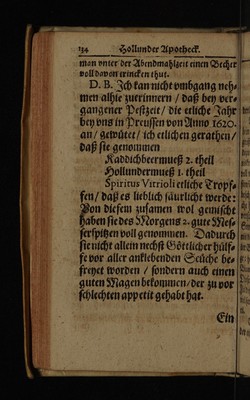 134 Hollunder Apotheck.
man vnter der Abendmahlzeit einen Becher
voll davon trincken thut.
D. B. Ich kan nicht vmbgang neh-
men alhie zuerinnern / daß bey ver-
gangener Pestzeit / die etliche Jahr
bey vns in Preussen von Anno 1620.
an / gewütet / ich etlichen gerathen /
daß sie genommen
Kaddichbeermueß 2. theil
Hollundermueß 1. theil
Spiritus Vitrioli etliche Tropf-
fen / daß es lieblich säurlicht werde:
Von diesem zusamen wol gemischt
haben sie des Morgens 2. gute Mes-
serspitzen voll genommen. Dadurch
sie nicht allein nechst Göttlicher hülf-
fe vor aller anklebenden Seuche be-
freyet worden / sondern auch einen
guten Magen bekommen / der zu vor
schlechten appetit gehabt hat.
Ein